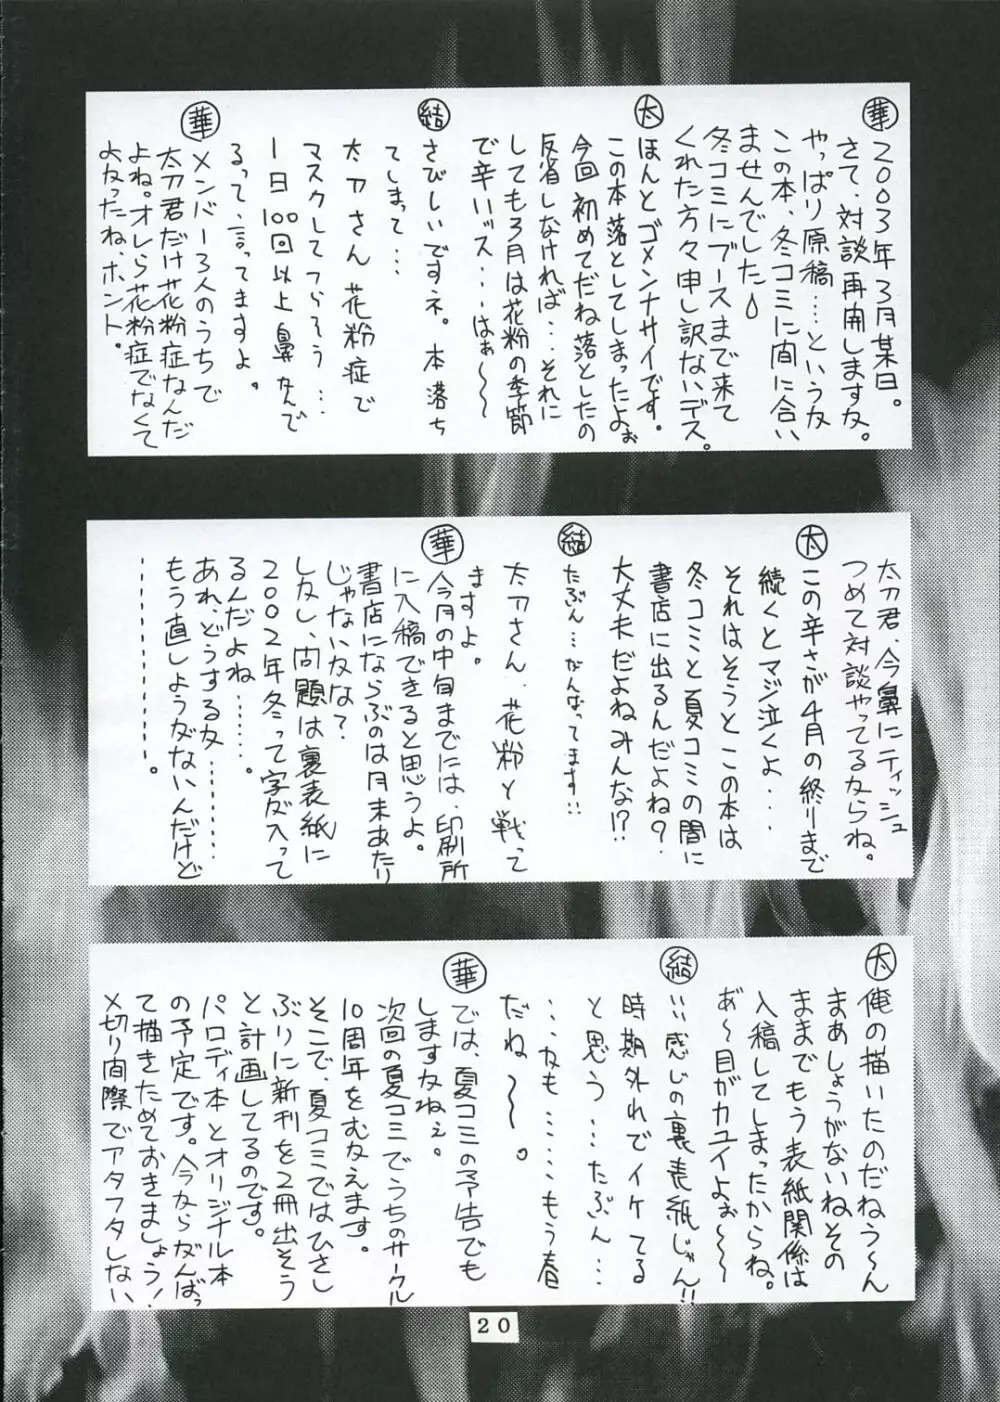 華
2003年3月某日。
さて、対談再開しますな。
やっぱり原稿…というか
この本、冬コミに間に合い
ませんでした
冬コミにブースまで来て
くれた方々申し訳ないデス。
太
ほんとゴメンナサイです。
この本落としてしまったよぉ
今回初めてだね落としたの
反省しなければ…それに
しても3月は花粉の季節
で辛いッス…はぁ〜〜
結
さびしいですネ。本落ち
てしまって…
太刀さん花粉症で
マスクしてつらそう…
1日100回以上鼻かんで
るって、言ってますよ。
華
メンバー3人のうちで
太刀君だけ花粉症なんだ
よね。オレら花粉症でなくて
よかったね、ホント。
太刀君、今鼻にティッシュ
つめて対談やってるからね。
太
この辛さが4月の終りまで
続くとマジ泣くよ・・・
それはそうとこの本は
冬コミと夏コミの間に
書店に出るんだよね？
大丈夫だよねみんな!?
結
たぶん…がんばってます!!
太刀さん、花粉と戦って
ますよ。
華
今月の中旬までには、印刷所
に入稿できると思うよ。
書店にならぶのは月末あたり
じゃないかな？
しかし、問題は裏表紙に
2002年冬って字が入って
るんだよね……。
あれ、どうするか………
もう直しようがないんだけど
…………。
太
俺の描いたのだねう〜ん
まあしょうがないねその
ままでもう表紙関係は
入稿してしまったからね。
あ〜目がカユイよぉ〜〜
結
いい感じの裏表紙じゃん!!
時期外れでイケてる
と思う…たぶん…
…かも……もう春
だね〜〜。
華
では、夏コミの予告でも
しますかねぇ。
次回の夏コミでうちのサークル
10周年をむかえます。
そこで、夏コミではひさし
ぶりに新刊を2冊出そう
と計画してるのです。
パロディ本とオリジナル本
の予定です。今からがんばっ
て描きためておきましょう！
〆切り間際でアタフタしない
20